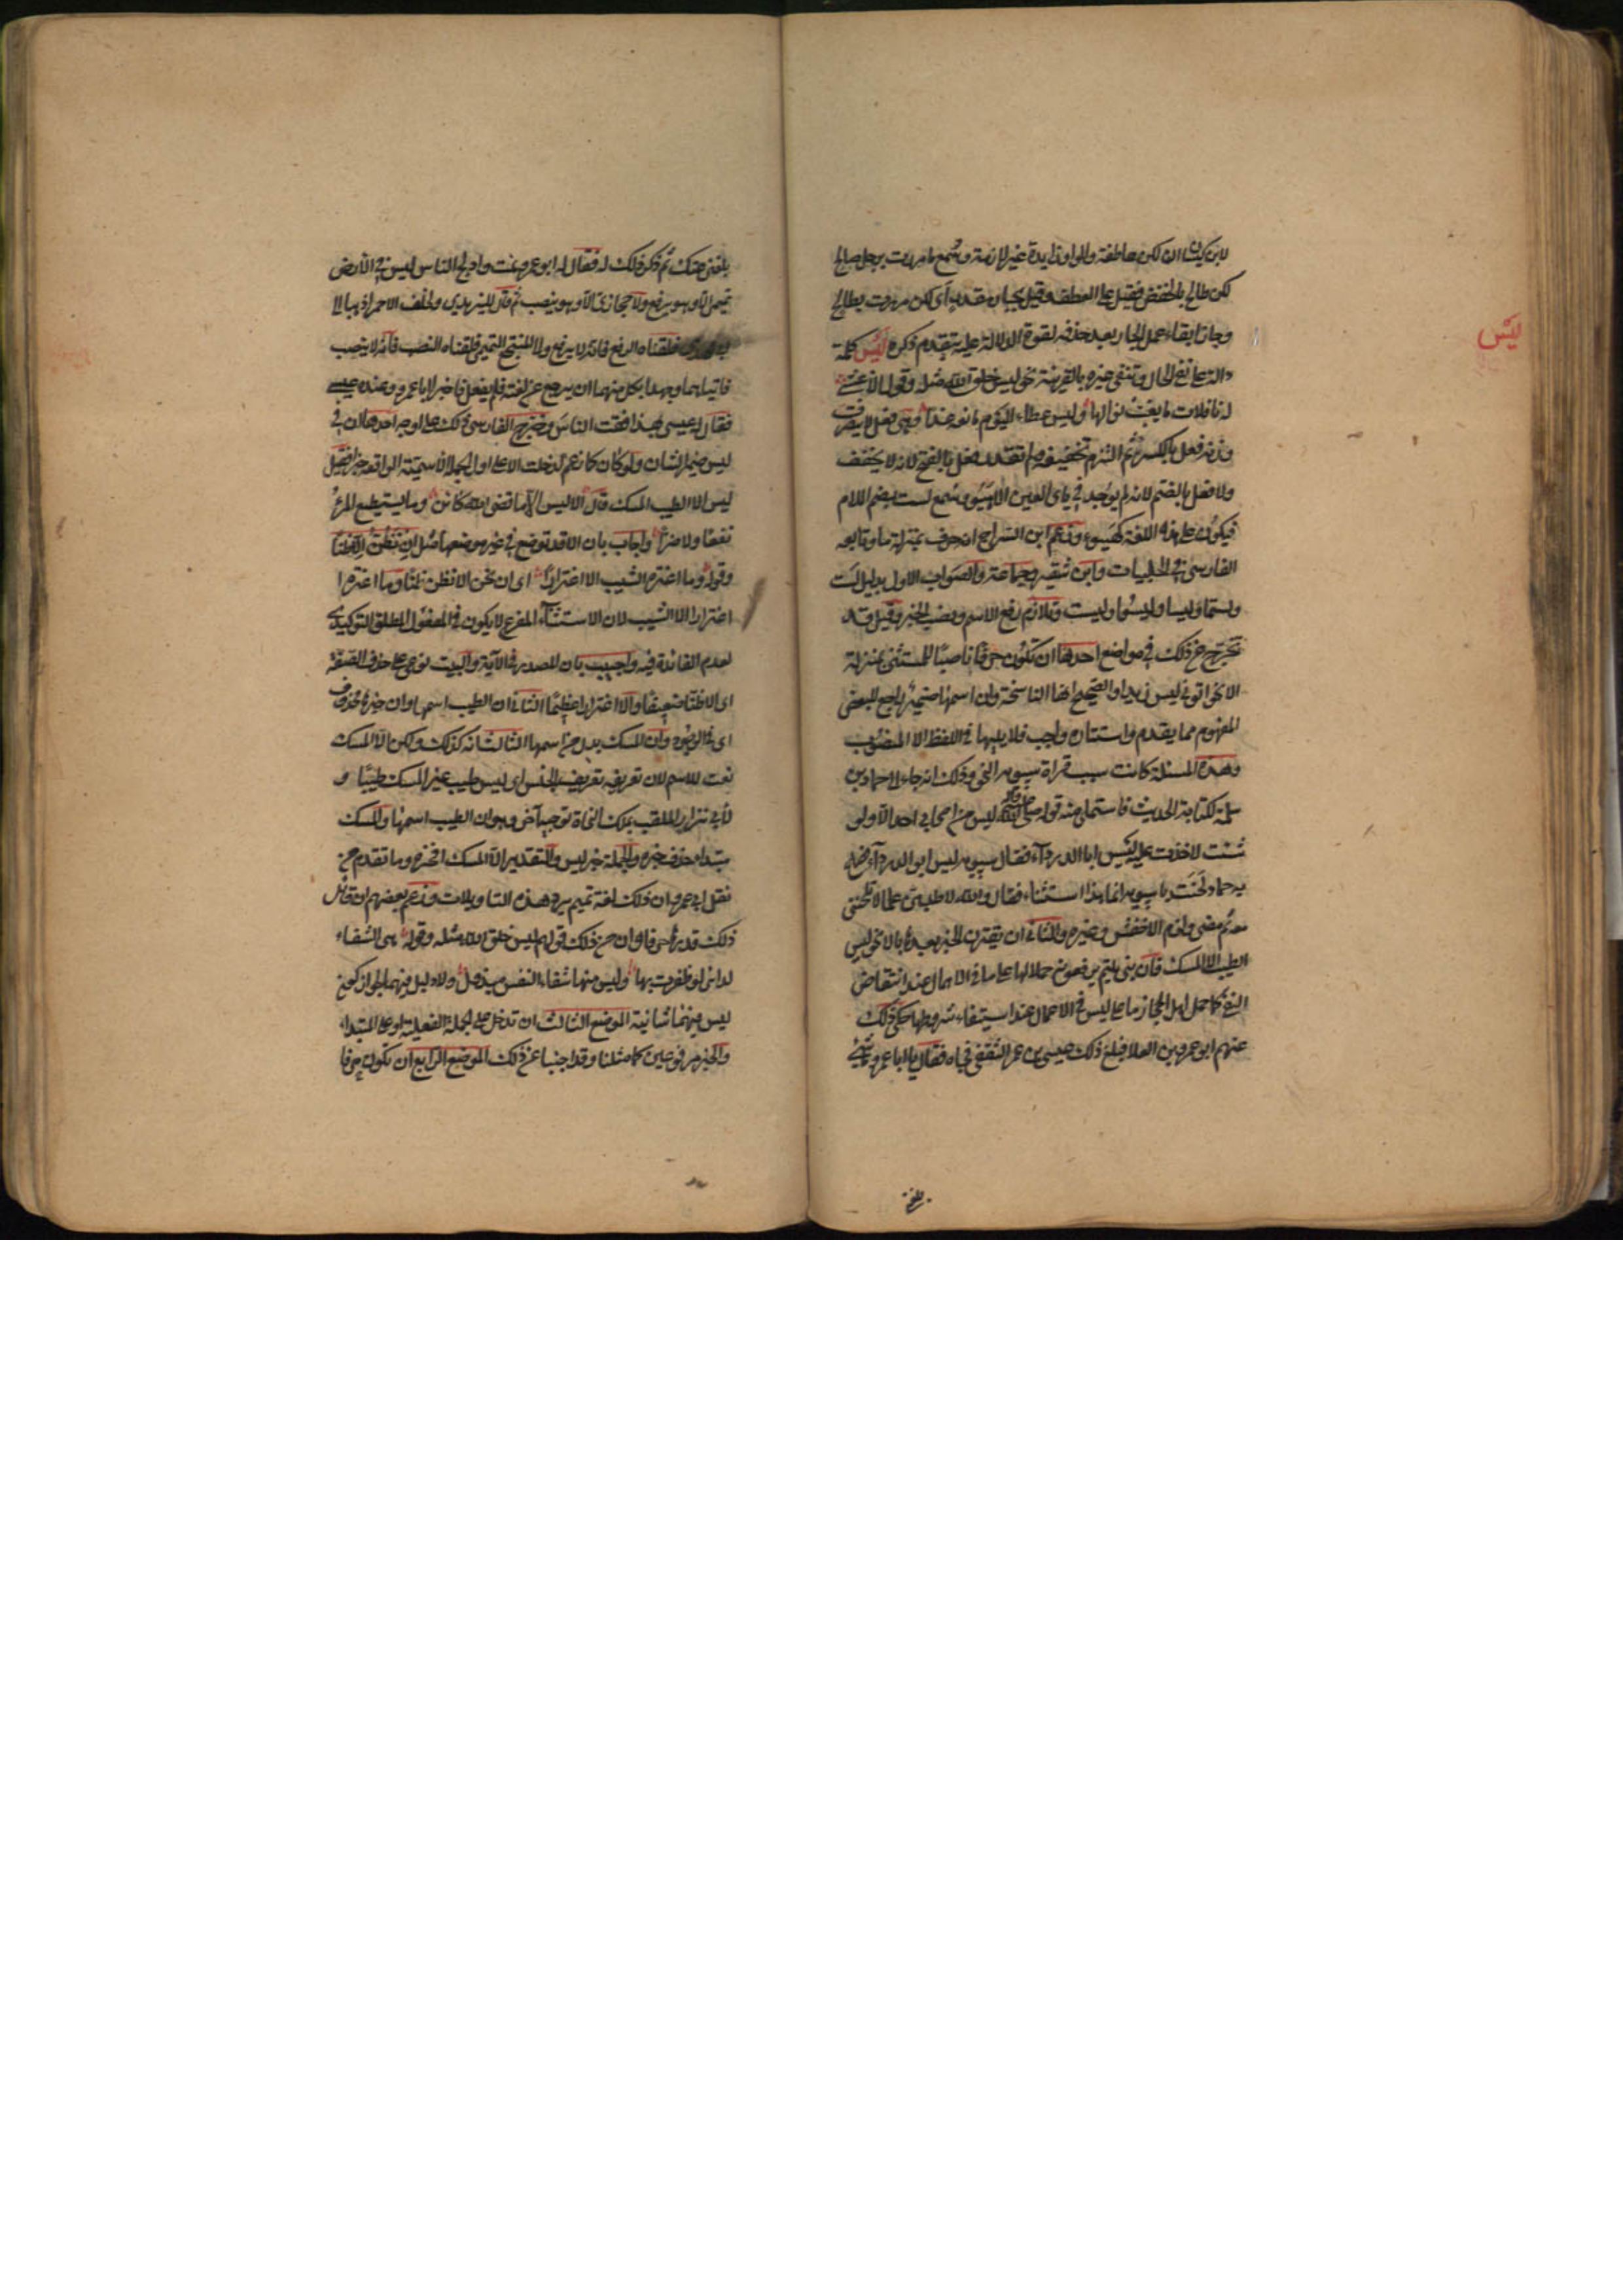 لابن كيسان ان لكن عاطفة والواو زايدة غير لازمة وسمع ما مررت برجل صالح
لكن طالح بالخفض فقيل على العطف وقيل بجار مقدر اى لكن مررت بطالح
وجاز ابقاء عمل الجار بعد حذفه لقوة الدلالة عليه بتقدم ذكره لَيْس كلمة
ليْس
دالة على نفى الحال وتنفى غيره بالقرينة نحو ليس خلق الله مثله وقول الاعشى
له نافلات ما يغب نوالها وليس عطاء اليوم مانعه غدا وهى فعل لا يتصرف
وزنه فعل بالكسر ثم التزم تخفيفه ولم نقدره فعل بالفتح لانه لا يخفف
ولا فعل بالضم لانه لم يوجد فى ياى العين الا هَيُؤ وسمع لست بضم اللام
فيكون على هذه اللغة كهيؤ وزعم ابن السراج انه حرف بمنزلة ما وتابعه
الفارسى فى الحلبيات وابن شقير وجماعة والصواب الاول بدليل لست
ولستما وليسا وليسوا وليست وتلازم رفع الاسم ونصب الخبر وقيل قد
تخرج عن ذلك فى مواضع احدها ان تكون حرفا ناصبا للمستثنى بمنزلة
الا نحو اتونى ليس زيدا والصحيح انها الناسخة وان اسمها ضمير راجع للبعض
المفهوم مما تقدم واستتاره واجب فلا يليها فى اللفظ الا المنصوب
وهذه المسئلة كانت سبب قراة سيبويه النحو وذلك انه جاء الى حماد بن
سلمة لكتابة الحديث فاستملى منه قوله صلى الله عليه ليس من اصحابى احد الا ولو
شئت لاخذت عليه ليس ابا الدرداء فقال سيبويه ليس ابو الدرداء فصاح
به حماد لحنت يا سيبويه انما هذا استثناء فقال والله لاطلبن علما لا تلحننى
معه ثم مضى ولزم الاخفش وغيره والثانى ان يقترن الخبر بعدها بالا نحو ليس
الطيب الا المسك فان بنى تميم يرفعونه حملا لها على ما فى الاهمال عند انتقاض
النفى كما حمل اهل الحجاز ما على ليس فى الاعمال عند استيفاء شروطها حكى ذلك
عنهم ابو عمرو بن العلا فبلغ ذلك عيسى بن عمر الثقفى فجاه فقال يا ابا عمرو ما شئ
بلغنى عنك ثم ذكر ذلك له فقال له ابو عمرو نمت وادلج الناس ليس فى الارض
تميمى الا وهو يرفع ولا حجازى الا وهو ينصب ثم قال لليزيدى ولخلف الاحمر اذهبا الى
فلقناه الرفع فانه لا يرفع والى المنتجع التميمى فلقناه النصب فانه لا ينصب
فاتياهما وجهدا بكل منهما ان يرجع عن لغته فلم يفعل فاخبرا ابا عمرو وعنده عيسى
فقال له عيسى بهذا فقت الناس وخرج الفارسى ذلك على اوجه احدها ان فى
ليس ضمير الشان ولو كان كما زعم لدخلت الا على اول الجملة الاسمية الواقعة خبرا فقيل
ليس الا الطيب المسك قال الا ليس الا ما قضى الله كائن وما يستطيع المرء
نفعا ولا ضرا واجاب بان الا قد توضع فى غير موضعها مثل ان نظن الا ظنا
وقوله وما اغتره الشيب الا اغترارا اى ان نحن الا نظن ظنا وما اغتره
اغترارا الا الشيب لان الاستثناء المفرغ لا يكون فى المفعول المطلق التوكيدى
لعدم الفائدة فيه واجيب بان المصدر فى الآية والبيت نوعى على حذف الصفة
اى الا ظنا ضعيفا والا اغترارا عظيما الثانى ان الطيب اسمها وان خبرها محذوف
اى فى الوجود وان المسك بدل من اسمها الثالث انه كذلك ولكن الا المسك
نعت للاسم لان تعريفه تعريف الجنس اى ليس طيب غير المسك طيبا و
لأبى نزار الملقب بملك النحاة توجيه آخر وهو ان الطيب اسمها والمسك
مبتدا حذف خبره والجملة خبر ليس والتقدير الا المسك افخره وما تقدم من
نقل ابى عمرو ان ذلك لغة تميم يرد هذه التاويلات وزعم بعضهم ان قائل
ذلك قدرها حرفا وان من ذلك قولهم ليس خلق الله مثله وقوله هى الشفاء
لدائى لو ظفرت بها وليس منها شفاء النفس مبذول ولا دليل فيهما لجواز كون
ليس فيهما شانية الموضع الثالث ان تدخل على الجملة الفعلية او على المبتداء
والخبر مرفوعين كما مثلنا وقد اجبنا عن ذلك الموضع الرابع ان تكون حرفا